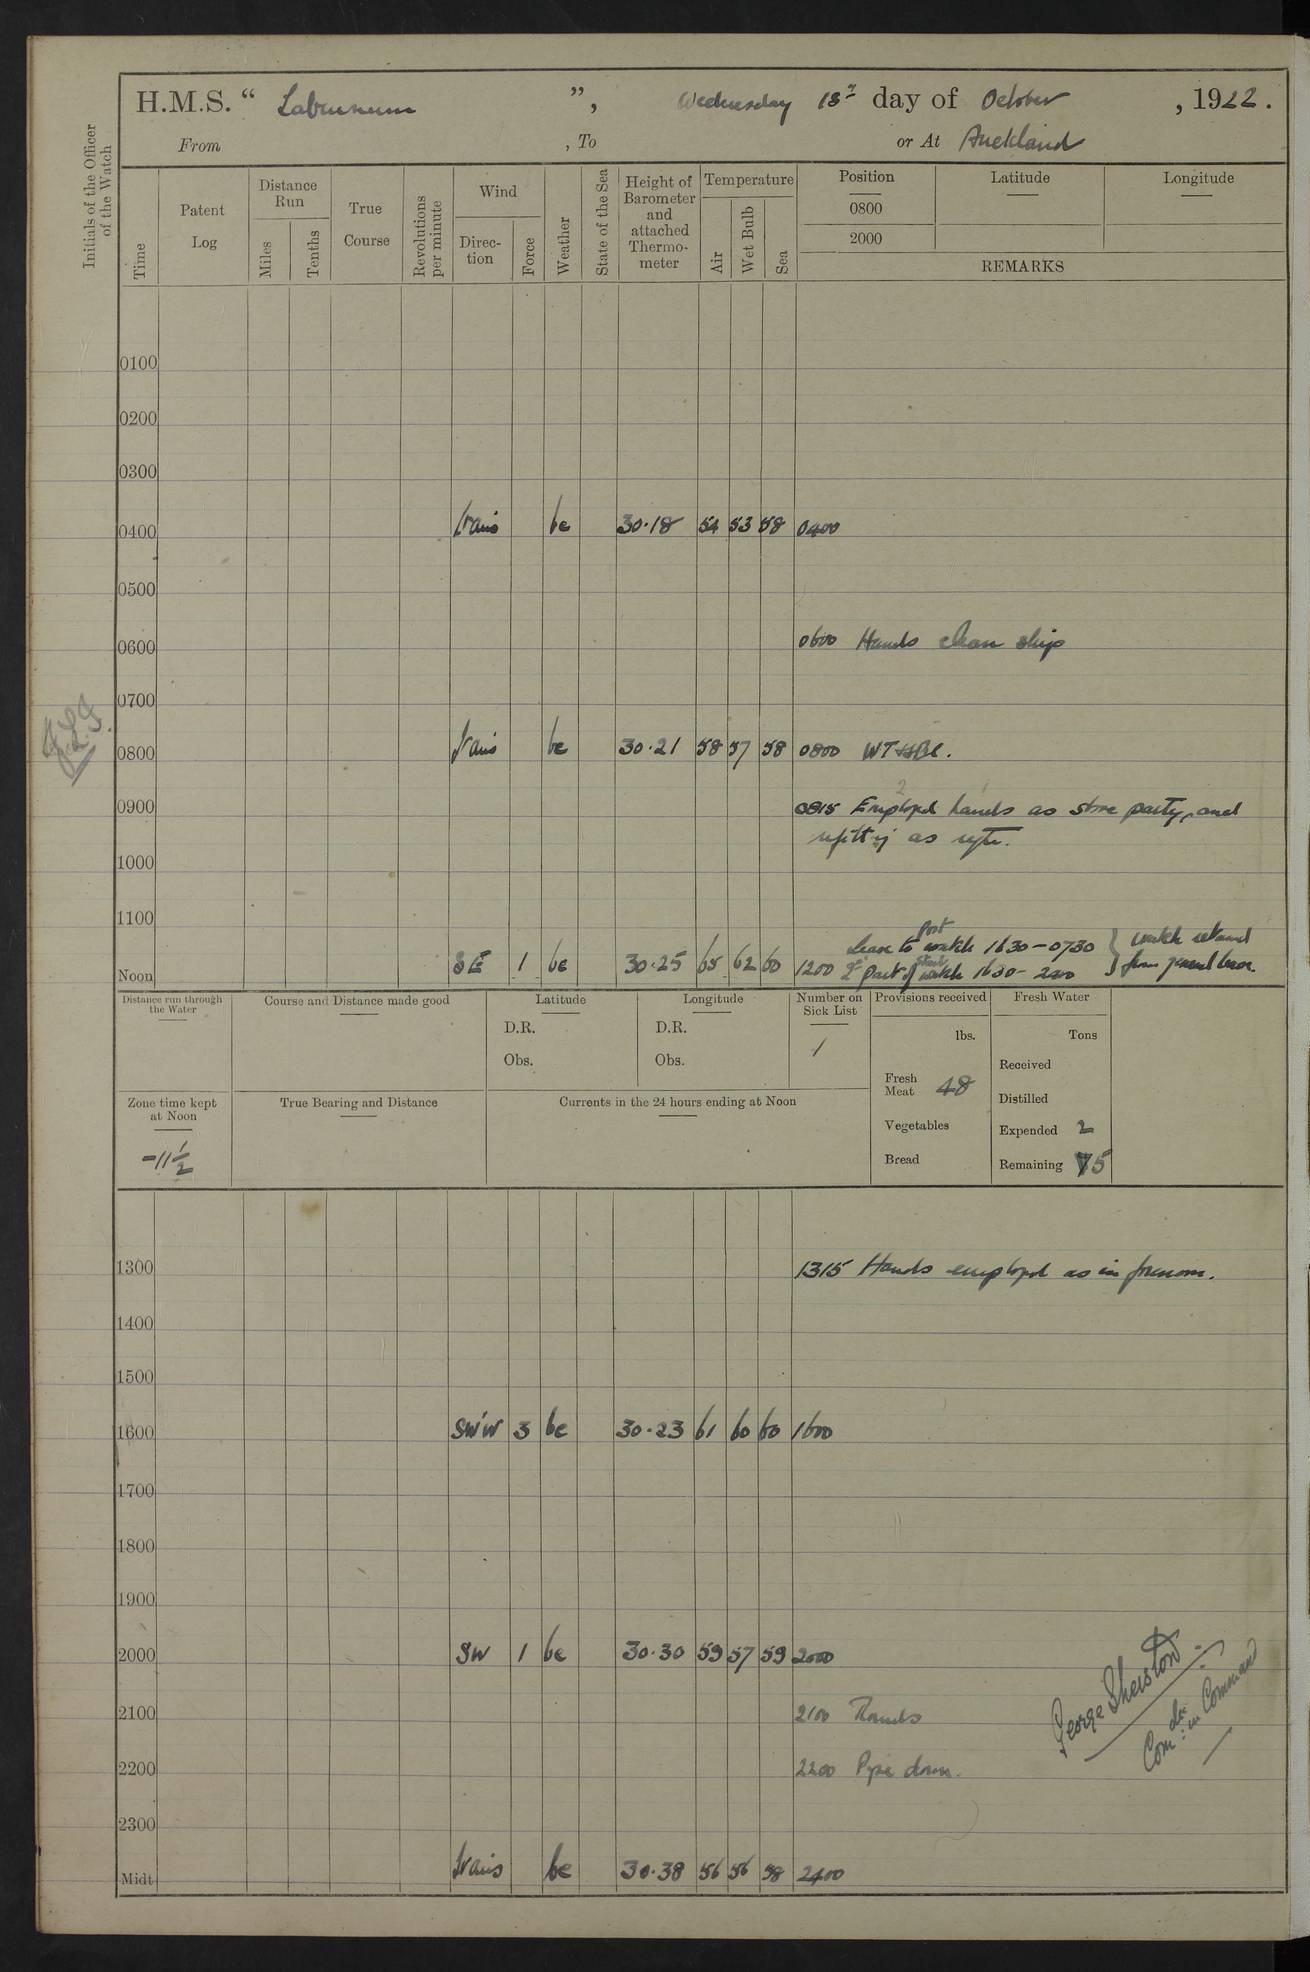 H.M.S. “ Laburnum ”, Wednesday 18th day of October , 1922.
From , To or At Auckland
Initials of the Officer
of the Watch
Time
Patent
Log
Distance
Run
Miles
Tenths
True
Course
Revolutions
per minute
Wind
Direc-
tion
Force
Weather
State of the Sea
Height of
Barometer
and
attached
Thermo-
meter
Temperature
Air
Wet Bulb
Sea
Position
0800
2000
Latitude
Longitude
REMARKS
0100
0200
0300
0400 bc 30.18 54 53 58 0400
0500
0600 0600 Hands clean ship
0700
0800 bc 30.21 58 57 58 0800
0900 0815 Employed hands as store party, and
refitting as reqte.
1000
1100
Port
Leave to watch 1630-0730
Noon SE 1 bc 30.25 65 62 60 1200 2nd part of Starbd watch 1630-2200
from general leave.
Distance run through
the Water
Course and Distance made good
Latitude
D.R.
Obs.
Longitude
D.R.
Obs.
Number on
Sick List
1
Provisions received
lbs.
Fresh
Meat 48
Vegetables
Bread
Fresh Water
Tons
Received
Distilled
Expended 2
Remaining 75
Zone time kept
at Noon
-11 1/2
True Bearing and Distance
Currents in the 24 hours ending at Noon
1300 1315 Hands employed as in forenoon.
1400
1500
1600 SW'W 3 bc 30.23 61 60 60 1600
1700
1800
1900
2000 SW 1 bc 30.30 59 57 59 2000
2100 2100 Rounds
2200 2200 Pipe down.
2300
Midt bc 30.38 56 56 58 2400
George Sherston
Comdr: in Command